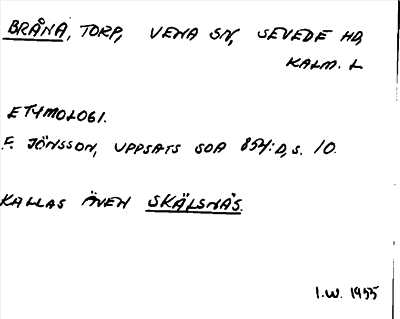 BRÅNA, TORP, VENA SN, SEVEDE HD,
KALM. L
ETYMOLOGI.
F. JÖNSSON, UPPSATS SOA 854:D, S. 10.
KALLAS ÄVEN SKÄLSNÄS.
I.W. 1955